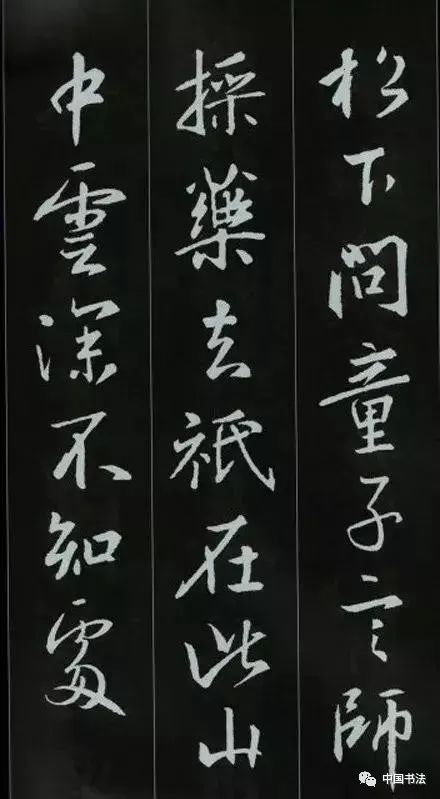 松下問童子言師
採藥去祇在此山
中雲深不知處
中国书法